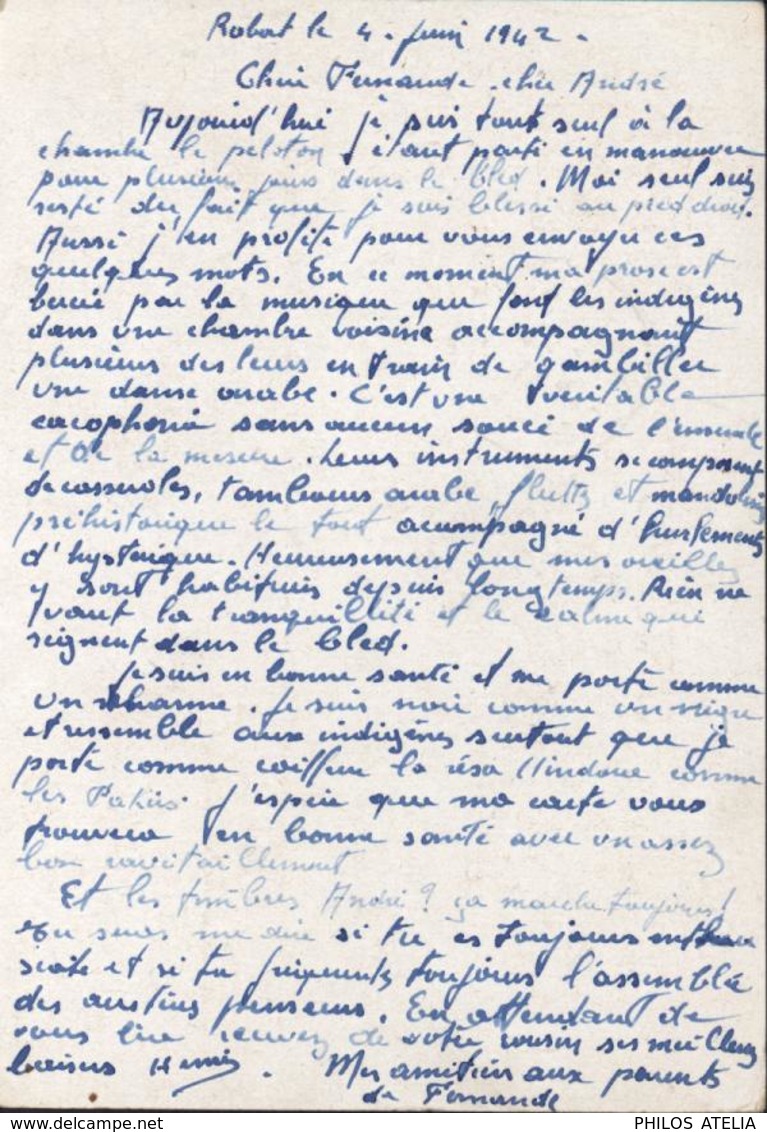 Rabat le 4 - Juin 1942 -
Chère Fernande, cher André
Aujourid'hui je suis tout seul à la
chambre le peloton étant parti en manoeuvre
pour plusieurs jours dans le bled. Moi seul suis
resté du fait que je suis blessé au pied droit.
Aussi j'en profite pour vous envoyer ces
quelques mots. En ce moment ma prose est
bercée par la musique que font les indigènes
dans une chambre voisine accompagnant
plusieurs des leurs en train de gambiller
une danse arabe. C'est une véritable
cacophonie sans aucun souci de l'ensemble
et de la mesure. Leurs instruments se composent
de casseroles, tambours arabe, flutte et mandolines
préhistorique le tout accompagné d'hurlements
d'hystérique. Heureusement que mes oreilles
y sont habitués depuis longtemps. Rien ne
vaut la tranquillité et le calme qui
reignent dans le bled.
Je suis en bonne santé et me porte comme
un charme. Je suis noir comme un nègre
et ressemble aux indigènes surtout que je
porte comme coiffure la résa hindoue comme
les J'espère que ma carte vous
trouvera en bonne santé avec un assez
bon ravitaillement
Et les timbres André? ça marche toujours!
Tu sauras me dire si tu es toujours enthou
siaste et si tu fréquentes toujours l'assemblée
des austères penseurs. En attendant de
vous lire recevez de votre cousin ses meilleurs
baisers Henri. Mes amitiés aux parents
de Fernande
PHILOS ATELIA